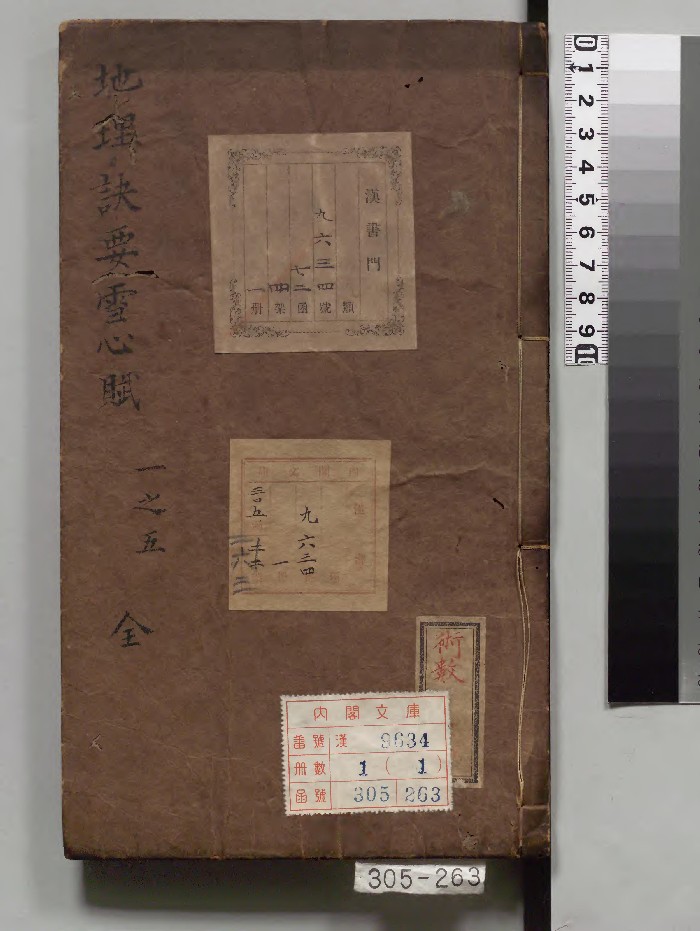 地理訣要雪心賦
一之五
全
漢書門
類
九六三四號
七二函
四架
一冊
九六三四
一
三〇五
術數
内閣文庫
番號 漢 9634
冊數 1 ( 1 )
函號 305 263
305-263
0 1 2 3 4 5 6 7 8 9 10